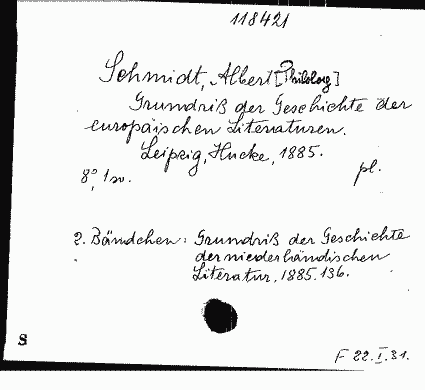 118421
Schmidt, Albert [Philolog]
Grundriß der Geschichte der
europäischen Literaturen.
Leipzig, Hucke, 1885.
8°, 1 sv. pl.
2. Bändchen: Grundriß der Geschichte
der niederländischen
Literatur. 1885. 136.
S
F 22.I.31.